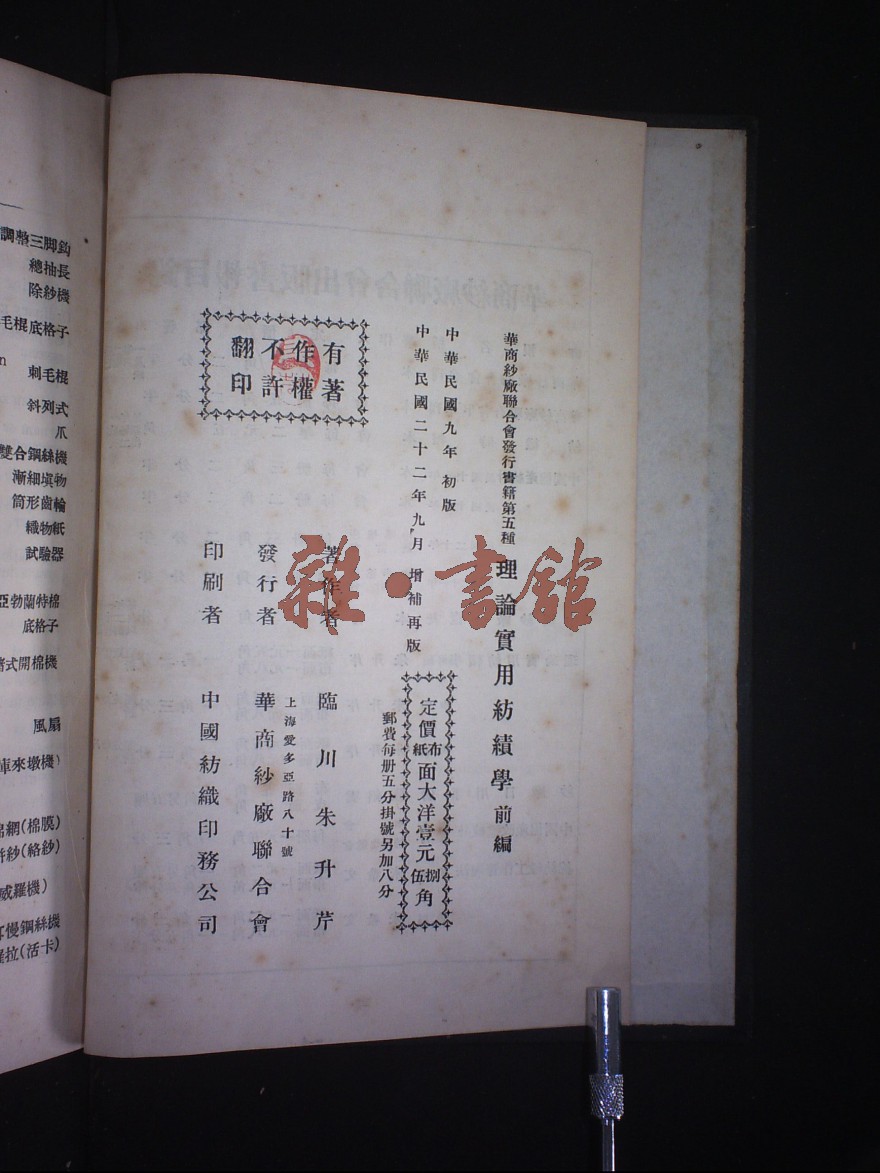 華商紗廠聯合會發行書籍第五種 理論實用紡績學 前編
中華民國九年 初版
中華民國二十二年九月 增補再版
定價 布面 紙面 大洋壹元 捌角 伍角
郵費每册五分掛號另加八分
有著
作權
不許
翻印
著作者 臨川朱升芹
上海愛多亞路八十號
發行者 華商紗廠聯合會
印刷者 中國紡織印務公司
雜·書館
調整三脚鈎
總抽長
除紗機
毛棍底格子
n
刺毛棍
斜列式
爪
雙合鋼絲機
漸細塡物
筒形齒輪
織物紙
試驗器
亞勃蘭特棉
底格子
式開棉機
風扇
庫來墩機)
棉網(棉膜)
紗(絡紗)
威羅機)
慢鋼絲機
拉(活卡)